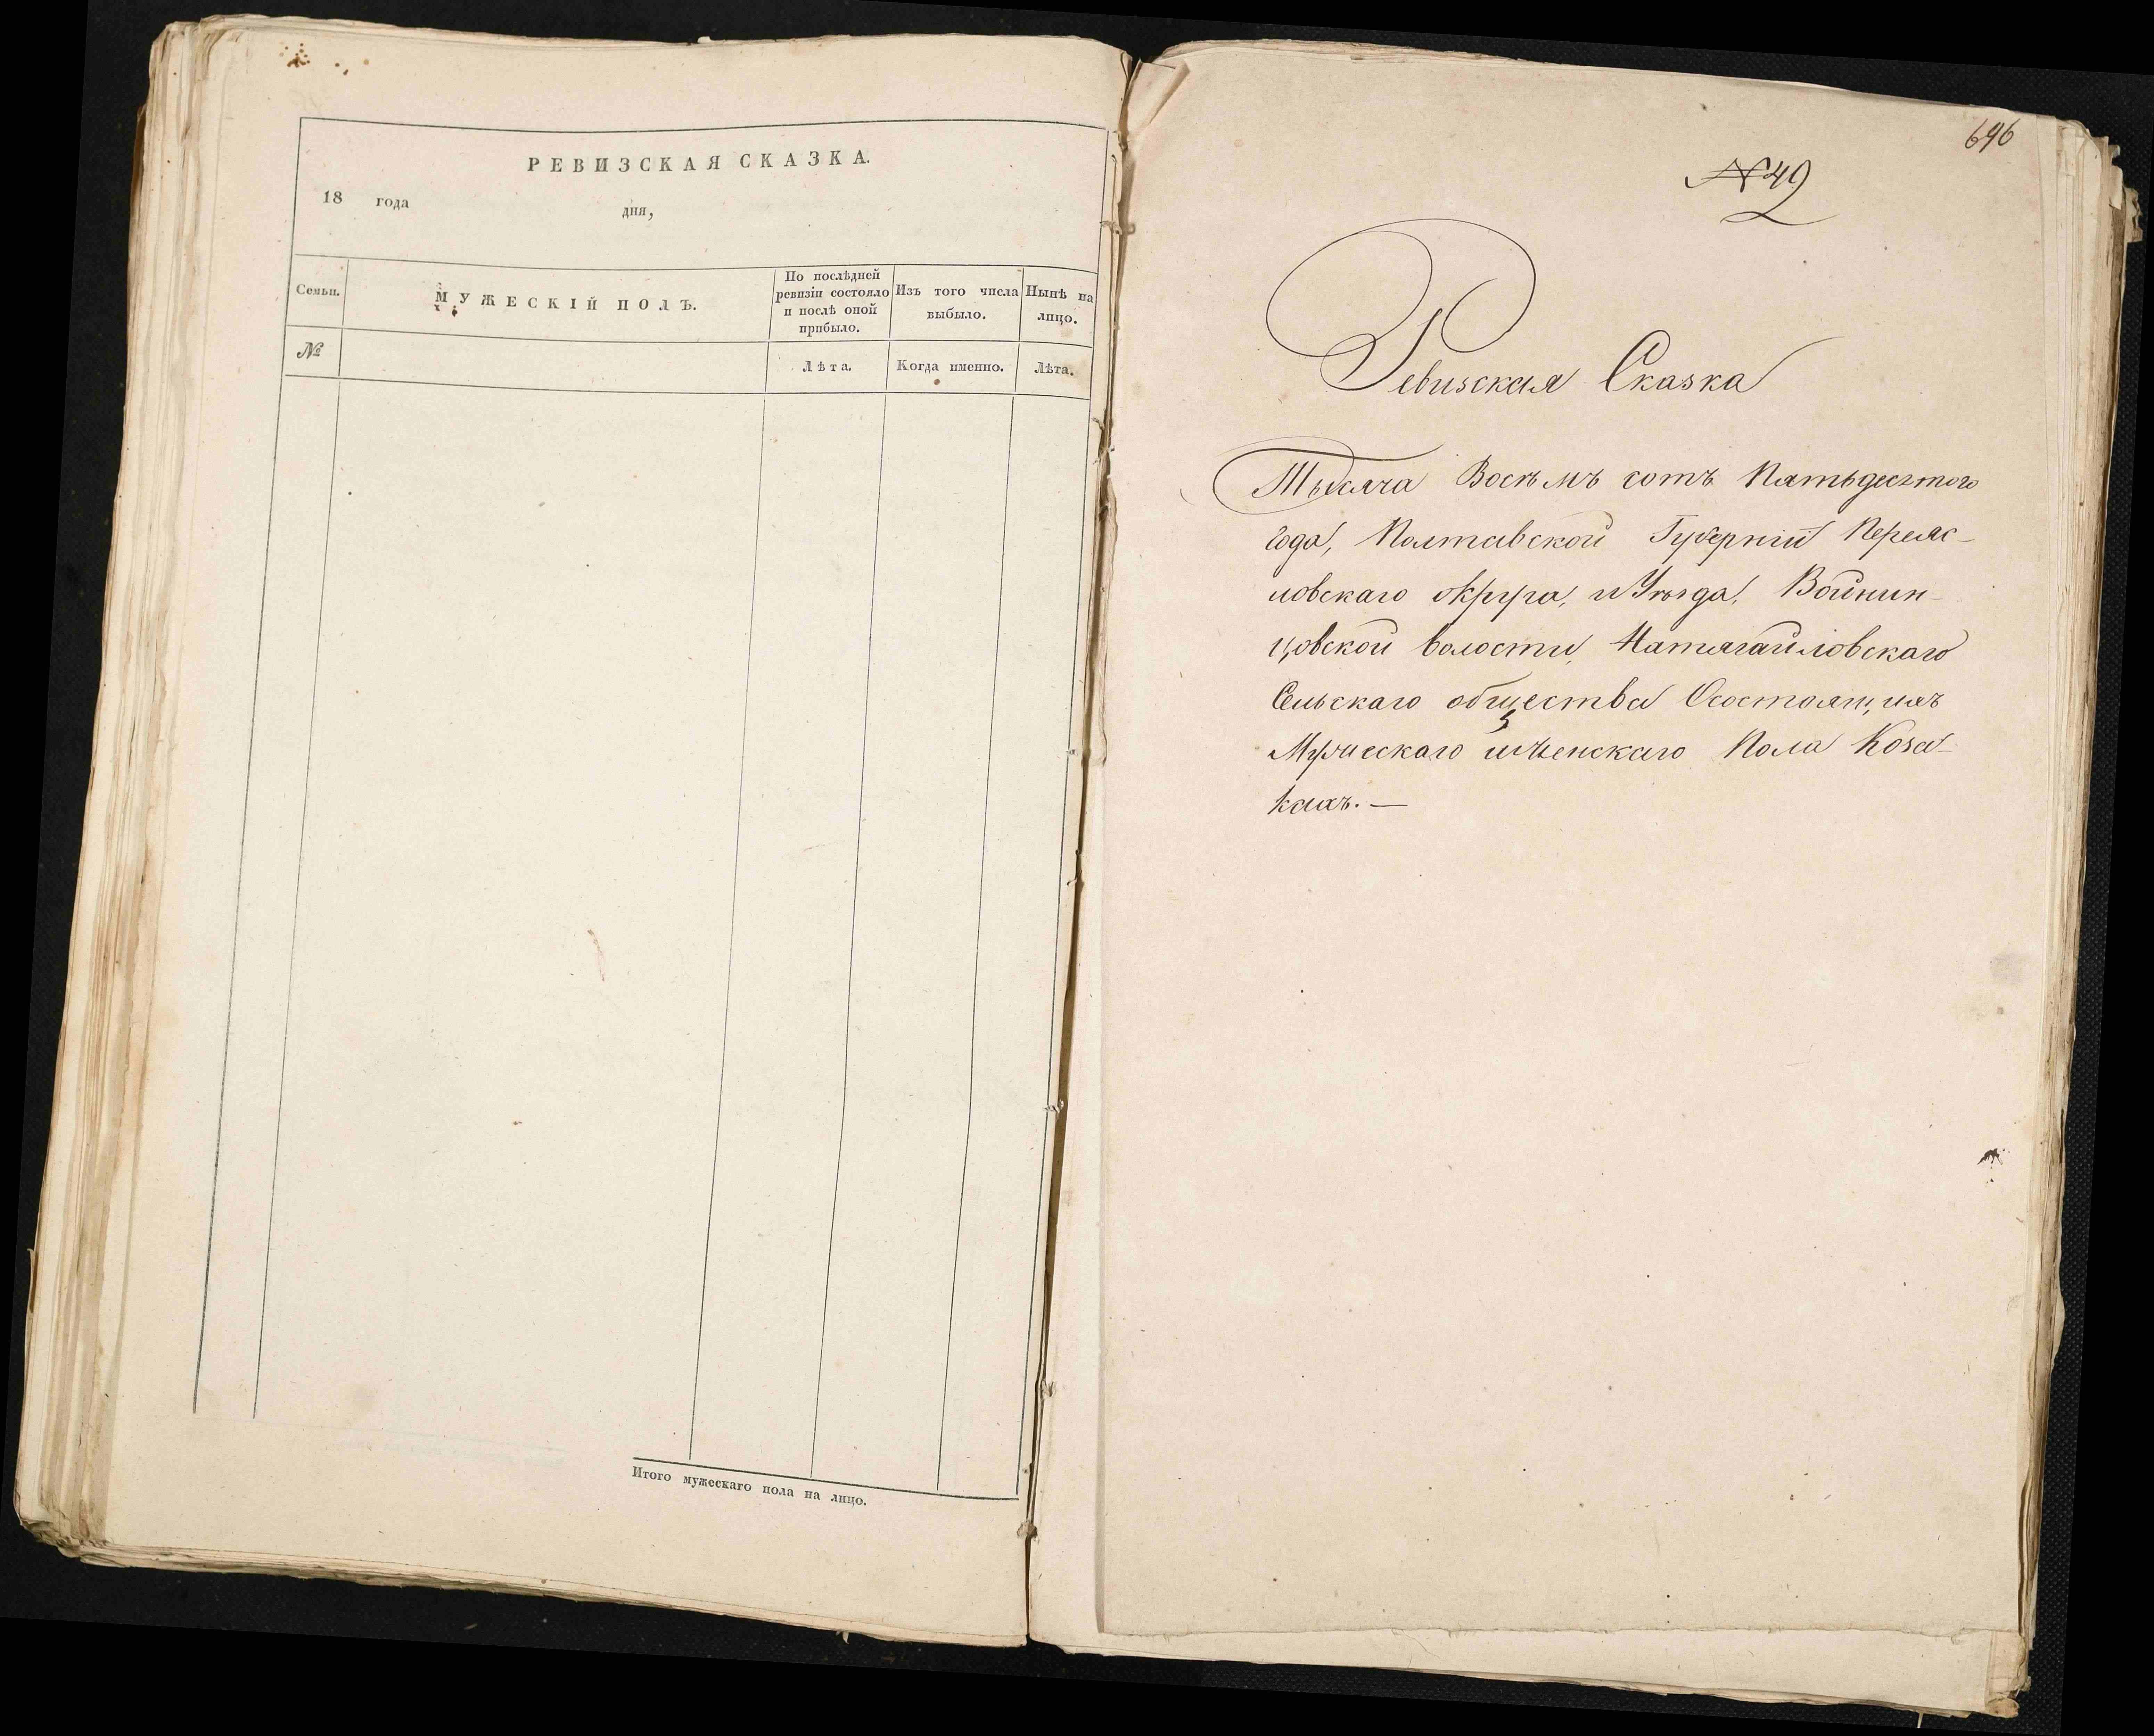 РЕВИЗСКАЯ СКАЗКА.
18 года дня,
Семьи.
МУЖЕСКІЙ ПОЛЪ.
По послѣдней
ревизіи состояло
и послѣ оной
прибыло.
Изъ того числа
выбыло.
Нынѣ на
лицо.
№
Лѣта.
Когда именно.
Лѣта.
Итого мужескаго пола на лицо.
696
№ 49
Ревизская Сказка
Тысяча Восѣмъ сотъ Пятьдесятого
года, Полтавской Губерніи Переяс-
ловскаго округа, и Уѣзда, Войнин-
цовской волости, Натягайловскаго
Сельскаго общества О состоящихъ
Мужескаго и Женскаго Пола Коза-
кахъ. —